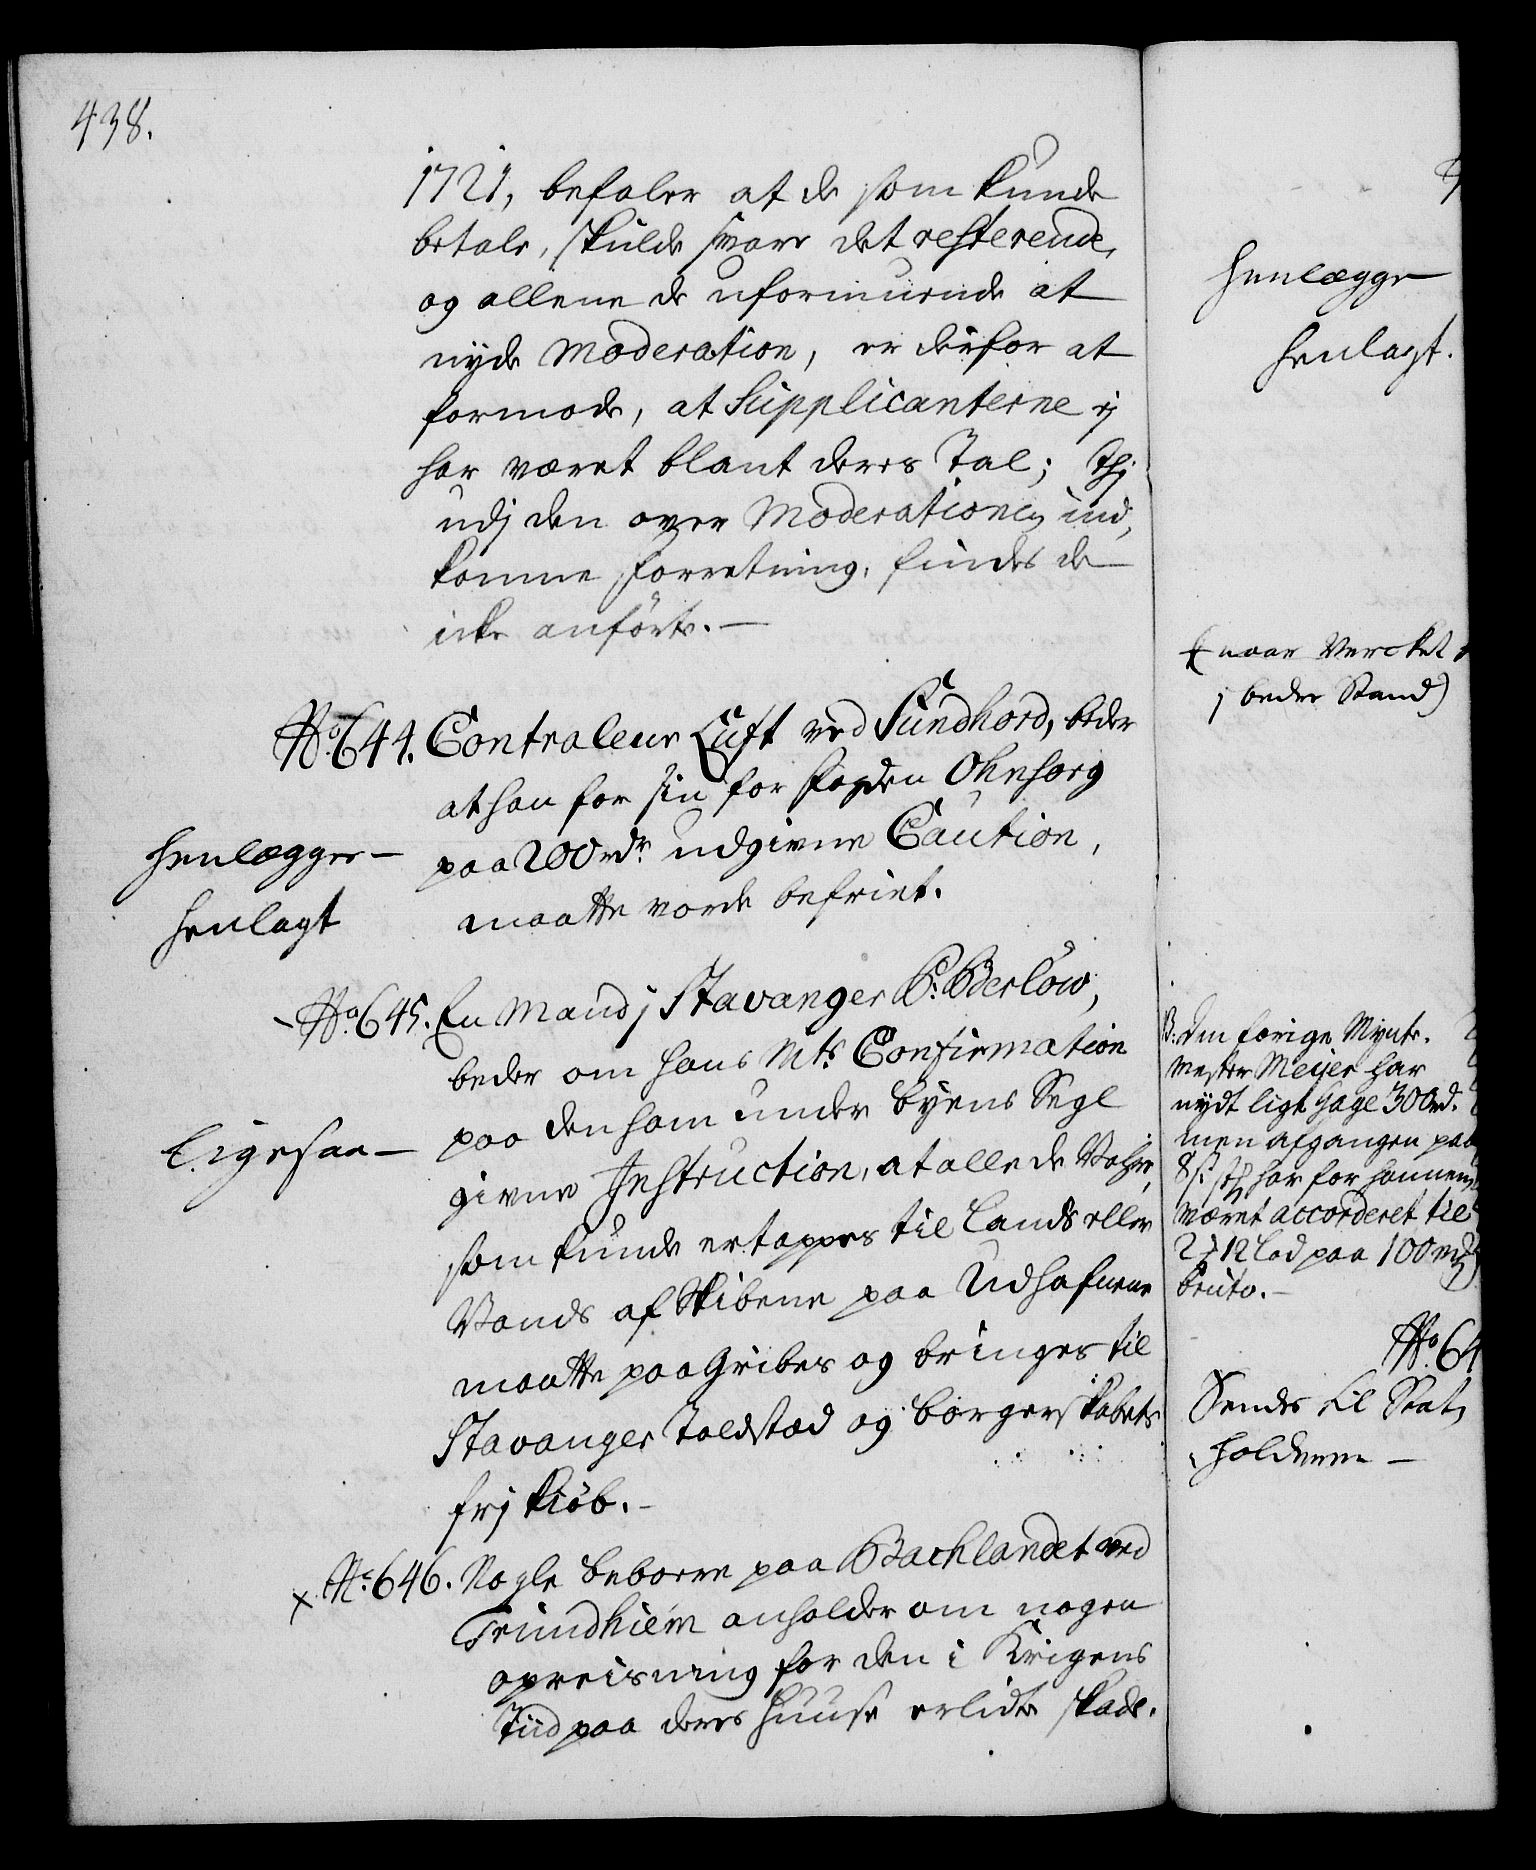 438.
1721, befaler at de som kunde
betale, skulde svare det resterende,
og allene de uformuende at
nyde Moderation, er derfor at
formode, at Supplicanterne ej
har været blant deres Tal; Thj
udj den over Moderationen ind,
komne forretning, findes de
icke anförte.—
No. 644. Contraleur Luft ved Sundhord, beder
at han for sin for fogden Ohnsorg
paa 200 rdr. udgivne Caution,
maatte vorde befriet.
henlegges—
henlagt
No. 645. En Mand j Stavanger P. Bderlow,
beder om hans Mts. Confirmation
paa den ham under byens Segl
givne Instruction, at alle de Vahre,
som kunde ertappes til Lands eller
Vands af Skibene paa Udhafnene
maatte paa Gribes og bringes til
Stavanger Toldstad og borgerskabets
frj kiöb.—
Ligesaa—
x No. 646. Nogle beboere paa Bachlandet ved
Trundhiem anholder om nogen
opreisning for den i Krigens
Tiid paa deres huuse erlidte skade.
henlægge
henlagt.
(naar Vercket
j beder Stand)
B: den forige Mynte.
Mester Meijer har
nydt ligt gage 300 rd.
men afgangen paa
har for hannem
været accorderet til
12 Lod paa 100
bruto.—
No. 64
Sendes til Stat,
holderen—